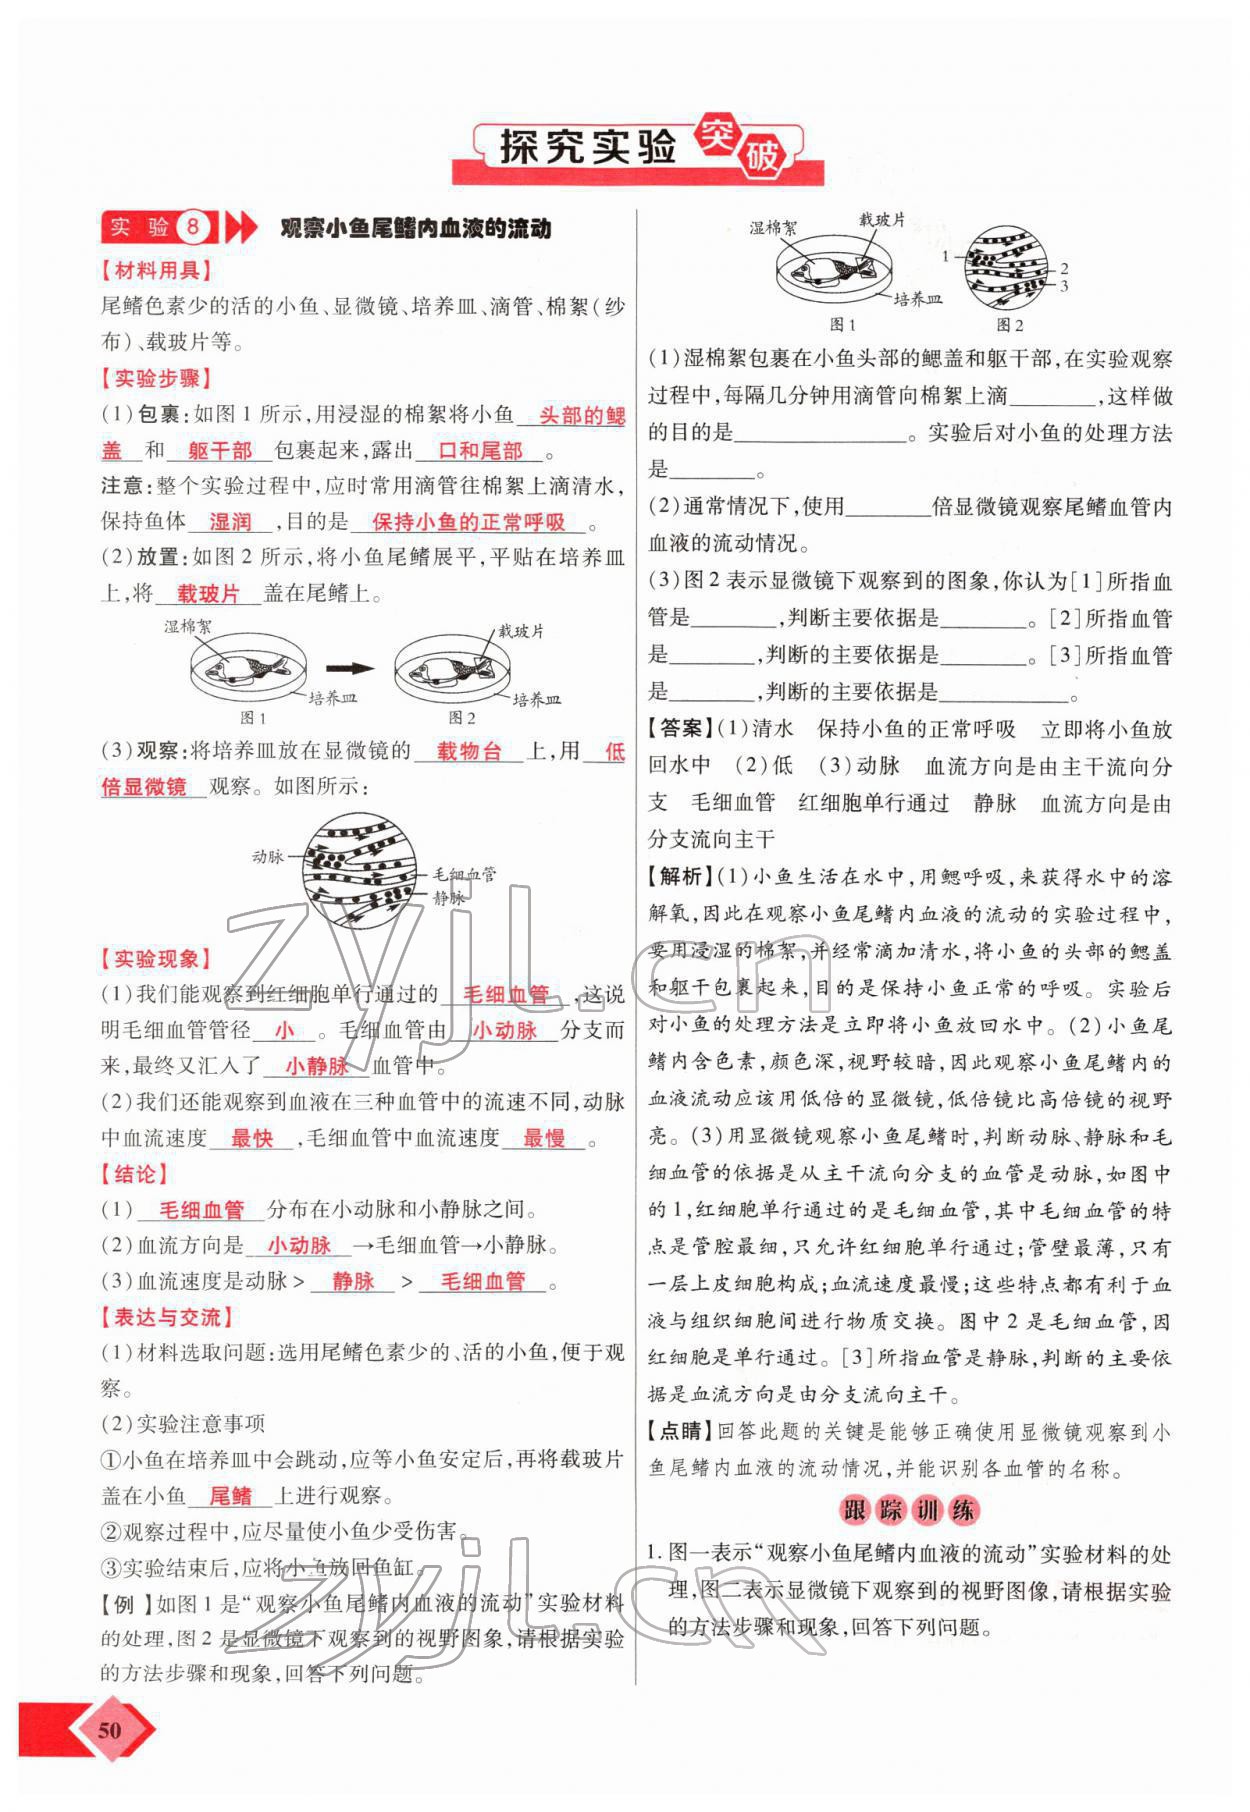 探究实验突破
实 验 8 观察小鱼尾鳍内血液的流动
【材料用具】
尾鳍色素少的活的小鱼、显微镜、培养皿、滴管、棉絮(纱
布)、载玻片等。
【实验步骤】
(1)包裹:如图1所示,用浸湿的棉絮将小鱼 头部的鳃
盖 和 躯干部 包裹起来,露出 口和尾部 。
注意:整个实验过程中,应时常用滴管往棉絮上滴清水,
保持鱼体 湿润 ,目的是 保持小鱼的正常呼吸 。
(2)放置:如图2所示,将小鱼尾鳍展平,平贴在培养皿
上,将 载玻片 盖在尾鳍上。
湿棉絮 载玻片
培养皿 培养皿
图1 图2
(3)观察:将培养皿放在显微镜的 载物台 上,用 低
倍显微镜 观察。如图所示:
动脉
毛细血管
静脉
【实验现象】
(1)我们能观察到红细胞单行通过的 毛细血管 ,这说
明毛细血管管径 小 。毛细血管由 小动脉 分支而
来,最终又汇入了 小静脉 血管中。
(2)我们还能观察到血液在三种血管中的流速不同,动脉
中血流速度 最快 ,毛细血管中血流速度 最慢 。
【结论】
(1) 毛细血管 分布在小动脉和小静脉之间。
(2)血流方向是 小动脉 →毛细血管→小静脉。
(3)血流速度是动脉> 静脉 > 毛细血管 。
【表达与交流】
(1)材料选取问题:选用尾鳍色素少的、活的小鱼,便于观
察。
(2)实验注意事项
①小鱼在培养皿中会跳动,应等小鱼安定后,再将载玻片
盖在小鱼 尾鳍 上进行观察。
②观察过程中,应尽量使小鱼少受伤害。
③实验结束后,应将小鱼放回鱼缸。
【例】如图1是“观察小鱼尾鳍内血液的流动”实验材料
的处理,图2是显微镜下观察到的视野图象,请根据实验
的方法步骤和现象,回答下列问题。
湿棉絮 载玻片
培养皿
1
2
3
图1 图2
(1)湿棉絮包裹在小鱼头部的鳃盖和躯干部,在实验观察
过程中,每隔几分钟用滴管向棉絮上滴________,这样做
的目的是________________。实验后对小鱼的处理方法
是________。
(2)通常情况下,使用________倍显微镜观察尾鳍血管内
血液的流动情况。
(3)图2表示显微镜下观察到的图象,你认为[1]所指血
管是________,判断主要依据是________。[2]所指血管
是________,判断的主要依据是________。[3]所指血管
是________,判断的主要依据是____________。
【答案】(1)清水 保持小鱼的正常呼吸 立即将小鱼放
回水中 (2)低 (3)动脉 血流方向是由主干流向分
支 毛细血管 红细胞单行通过 静脉 血流方向是由
分支流向主干
【解析】(1)小鱼生活在水中,用鳃呼吸,来获得水中的溶
解氧,因此在观察小鱼尾鳍内血液的流动的实验过程中,
要用浸湿的棉絮,并经常滴加清水,将小鱼的头部的鳃盖
和躯干包裹起来,目的是保持小鱼正常的呼吸。实验后
对小鱼的处理方法是立即将小鱼放回水中。(2)小鱼尾
鳍内含色素,颜色深,视野较暗,因此观察小鱼尾鳍内的
血液流动应该用低倍的显微镜,低倍镜比高倍镜的视野
亮。(3)用显微镜观察小鱼尾鳍时,判断动脉、静脉和毛
细血管的依据是从主干流向分支的血管是动脉,如图中
的1,红细胞单行通过的是毛细血管,其中毛细血管的特
点是管腔最细,只允许红细胞单行通过;管壁最薄,只有
一层上皮细胞构成;血流速度最慢;这些特点都有利于血
液与组织细胞间进行物质交换。图中2是毛细血管,因
红细胞是单行通过。[3]所指血管是静脉,判断的主要依
据是血流方向是由分支流向主干。
【点睛】回答此题的关键是能够正确使用显微镜观察到小
鱼尾鳍内血液的流动情况,并能识别各血管的名称。
跟踪训练
1. 图一表示“观察小鱼尾鳍内血液的流动”实验材料的处
理,图二表示显微镜下观察到的视野图像,请根据实验
的方法步骤和现象,回答下列问题。
50
zyjl.cn
zyjl.cn